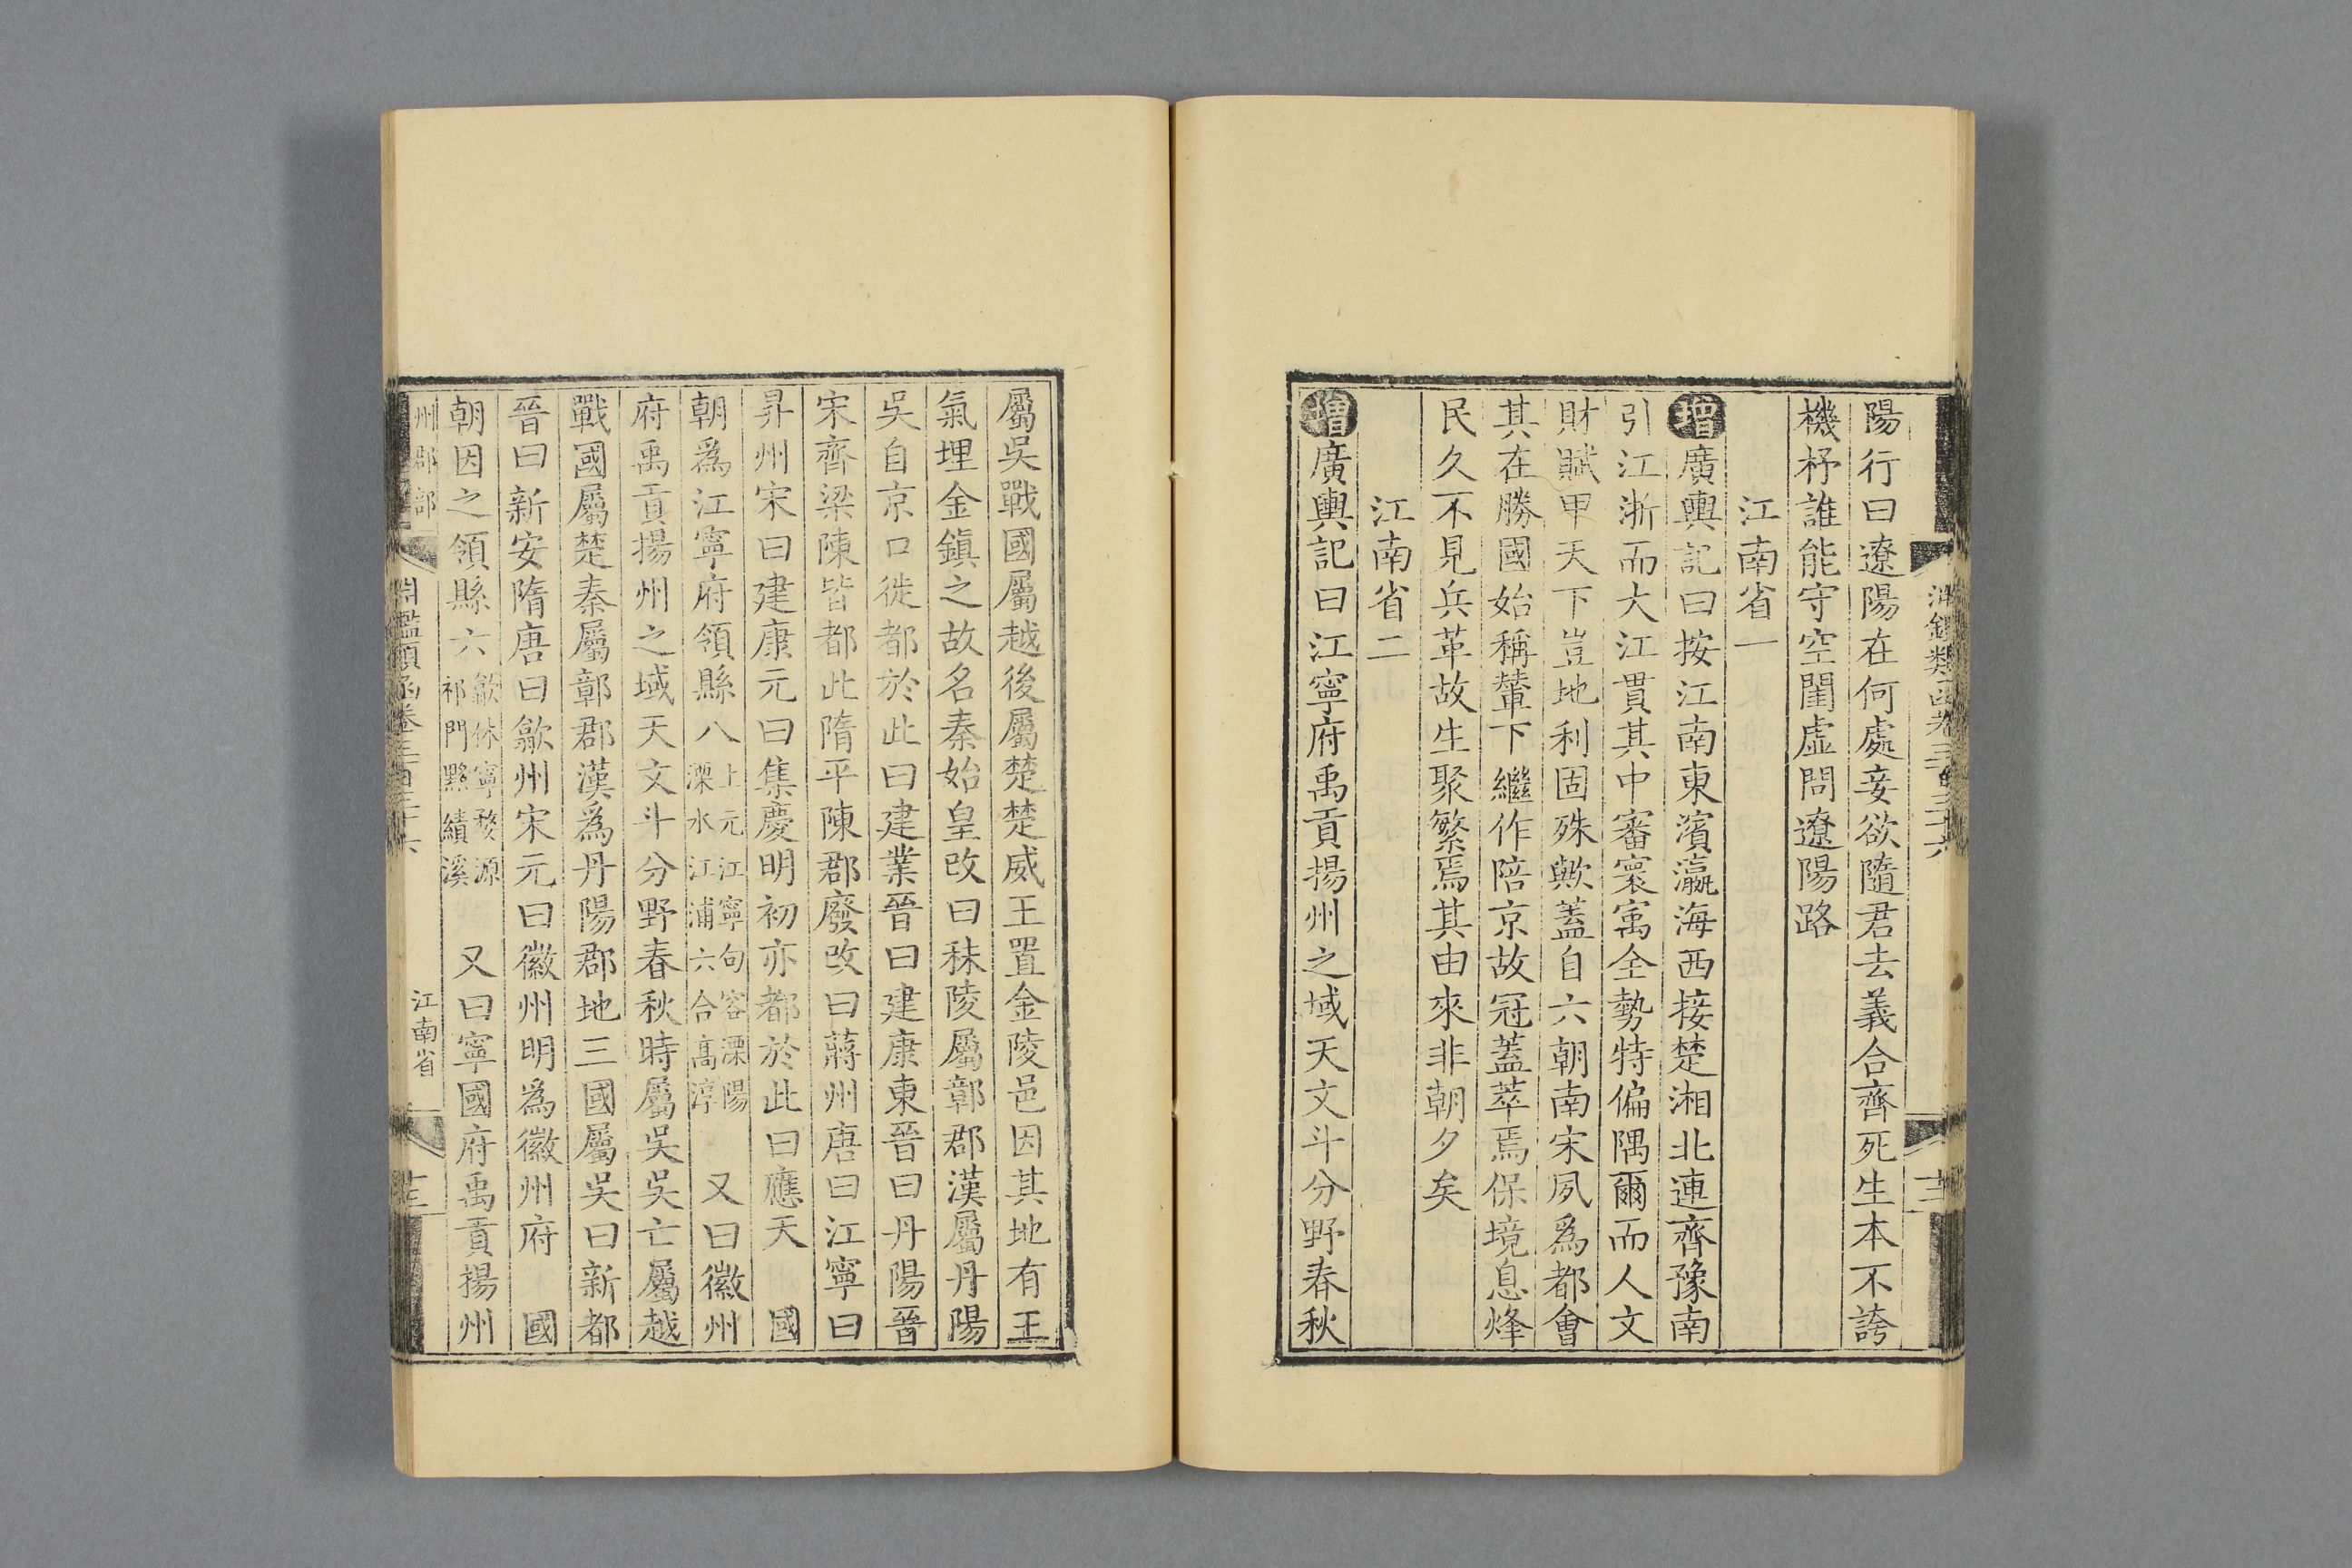 陽行曰遼陽在何處妾欲隨君去義合齊死生本不誇
機杼誰能守空閨虛問遼陽路
江南省一
增廣輿記曰按江南東濱瀛海西接楚湘北連齊豫南
引江浙而大江貫其中審寰㝢全勢特偏隅爾而人文
財賦甲天下豈地利固殊歟蓋自六朝南宋夙爲都會
其在勝國始稱輦下繼作陪京故冠蓋萃焉保境息烽
民久不見兵革故生聚繁焉其由來非朝夕矣
江南省二
增廣輿記曰江寧府禹貢揚州之域天文斗分野春秋
屬吳戰國屬越後屬楚楚威王置金陵邑因其地有王
氣埋金鎮之故名秦始皇改曰秣陵屬鄣郡漢屬丹陽
吳自京口徙都於此曰建業晉曰建康東晉曰丹陽晉
宋齊梁陳皆都此隋平陳郡廢改曰蔣州唐曰江寧曰
昇州宋曰建康元曰集慶明初亦都於此曰應天 國
朝爲江寧府領縣八上元江寧句容溧陽溧水江浦六合高淳 又曰徽州
府禹貢揚州之域天文斗分野春秋時屬吳吳亡屬越
戰國屬楚秦屬鄣郡漢爲丹陽郡地三國屬吳曰新都
晉曰新安隋唐曰歙州宋元曰徽州明爲徽州府 國
朝因之領縣六歙休寧婺源祁門黟績溪 又曰寧國府禹貢揚州
州郡部
淵鑑類函卷三百三十六
江南省
十三